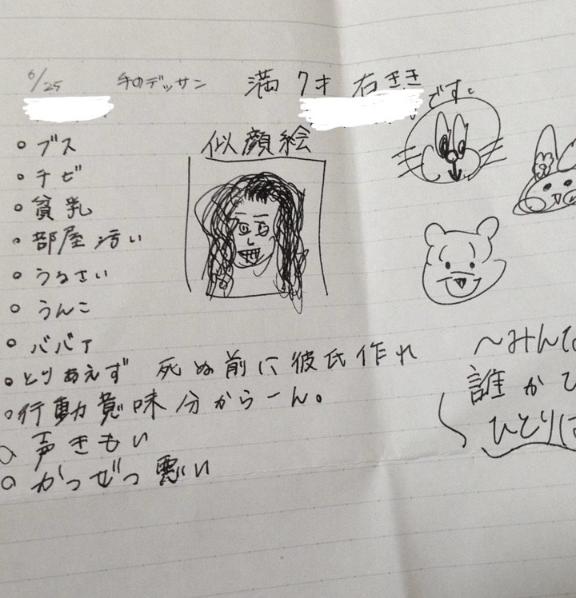 6/25 デッサン 満7才 右きき
です。
似顔絵
ブス
チビ
貧乳
部屋汚い
うるさい
うんこ
ババァ
とりあえず 死ぬ前に彼氏作れ
行動意味分からーん。
声きもい
かつぜつ悪い
〜みんな
誰かひ
ひとりは